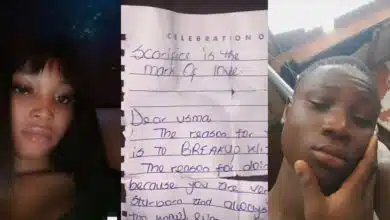 CELEBRATION O
Scarifice is the
mark Of love
Dear usma
The reason for
is to BREAKUP Wit
The reason for doin
because you are ver
Stubborn and always